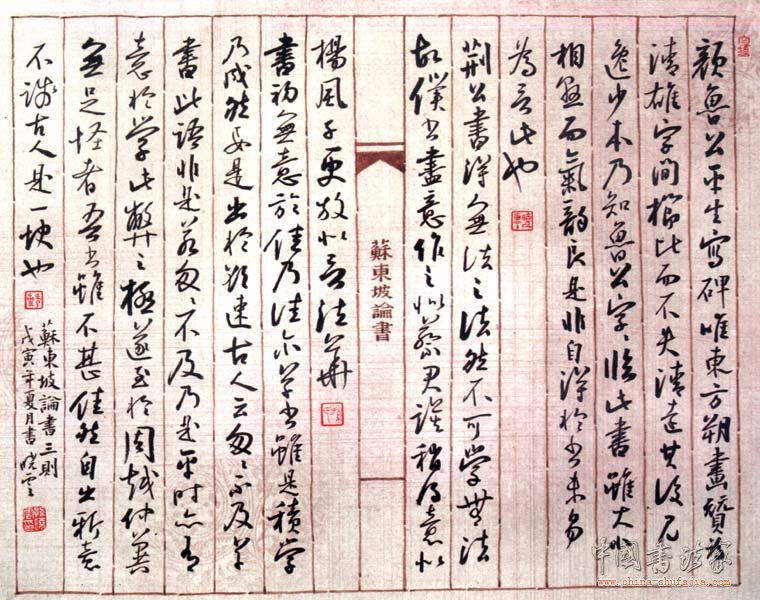 顏魯公平生寫碑唯東方朔畫贊為
清雄字間櫛比而不失清遠其後見
逸少本乃知魯公字字臨此書雖大小
相懸而氣韻良是非自得於書未易
為言此也
荊公書得無法之法然不可學無法
故僕書盡意作之似蔡君謨稍得意似
蘇東坡論書
楊風子更放似言法華
書初無意於佳乃佳尔草書雖是積學
乃成然要是出於欲速古人云匆匆不及草
書此語非是若匆匆不及乃是平時亦有
意於學此弊之極遂至於周越仲翼
無足怪者吾書雖不甚佳然自出新意
不踐古人是一快也
蘇東坡論書三則
戊寅年夏月書 曉雲
中國書法家
www.china-chufajia.com